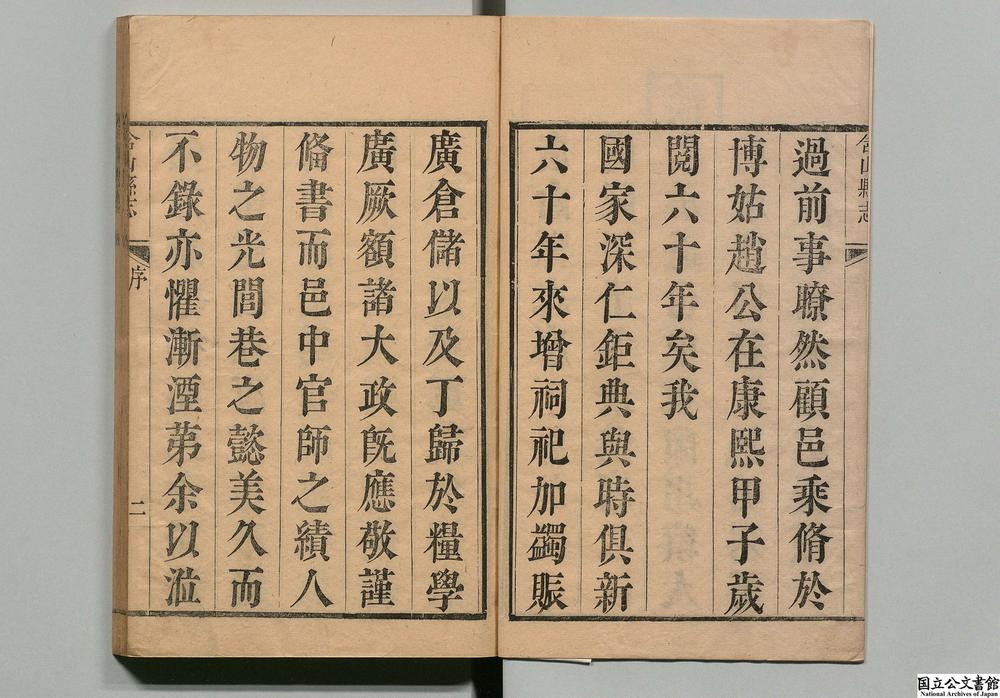 過前事瞭然顧邑乘脩於
博姑趙公在康熙甲子歲
閱六十年矣我
國家深仁鉅典與時俱新
六十年來增祠祀加蠲賑
廣倉儲以及丁歸於糧學
廣厥額諸大政旣應敬謹
偹書而邑中官師之績人
物之光閭巷之懿美久而
不錄亦懼漸湮苐余以涖
含山縣志
序
二
国立公文書館
National Archives of Japan